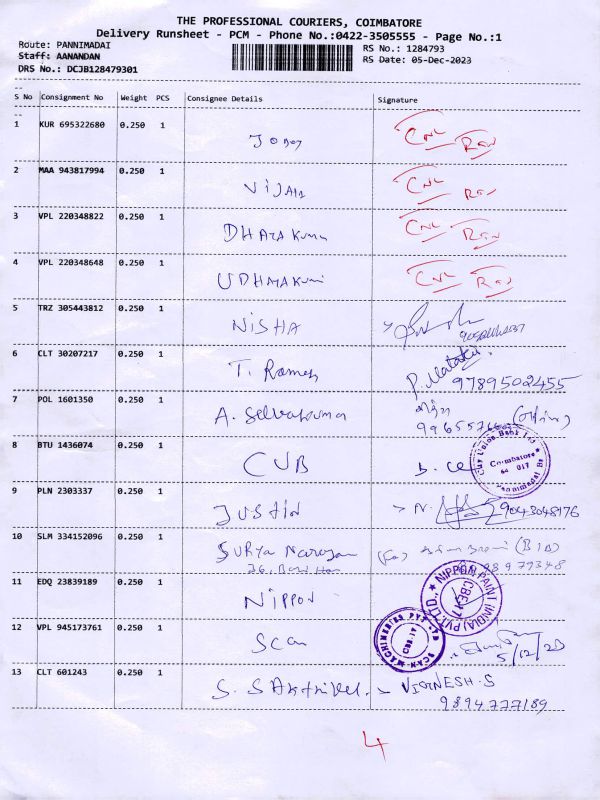 THE PROFESSIONAL COURIERS, COIMBATORE
Delivery Runsheet - PCM - Phone No.:0422-3505555 - Page No.:1
Route: PANNIMADAI RS No.: 1284793
Staff: AANANDAN RS Date: 05-Dec-2023
DRS No.: DCJB128479301
S No Consignment No Weight PCS Consignee Details Signature
1 KUR 695322680 0.250 1 JOBOY CNL
2 MAA 943817994 0.250 1 VIJAYA CNL
3 VPL 220348822 0.250 1 CNL
4 VPL 220348648 0.250 1 CNL
5 TRZ 305443812 0.250 1 NISHA
6 CLT 30207217 0.250 1 T. Ramesh P.
9789502455
7 POL 1601350 0.250 1 A. Selvakumar
8 BTU 1436074 0.250 1 CUB
City Union Bank Ltd
Coimbatore
64 017
Pannimadai Br
9 PLN 2303337 0.250 1 JUSTIN N. 9043048176
10 SLM 334152096 0.250 1 Surya Narayan
11 EDQ 23839189 0.250 1 NIPPON
NIPPON PAINT (INDIA) PVT. LTD.,
CBE-17
12 VPL 945173761 0.250 1 Scan
SCAN MACHINERIES PVT LTD
CBE-17
5/12/23
13 CLT 601243 0.250 1 S. SAKTHIVEL. VIGNESH.S
9894777189
4